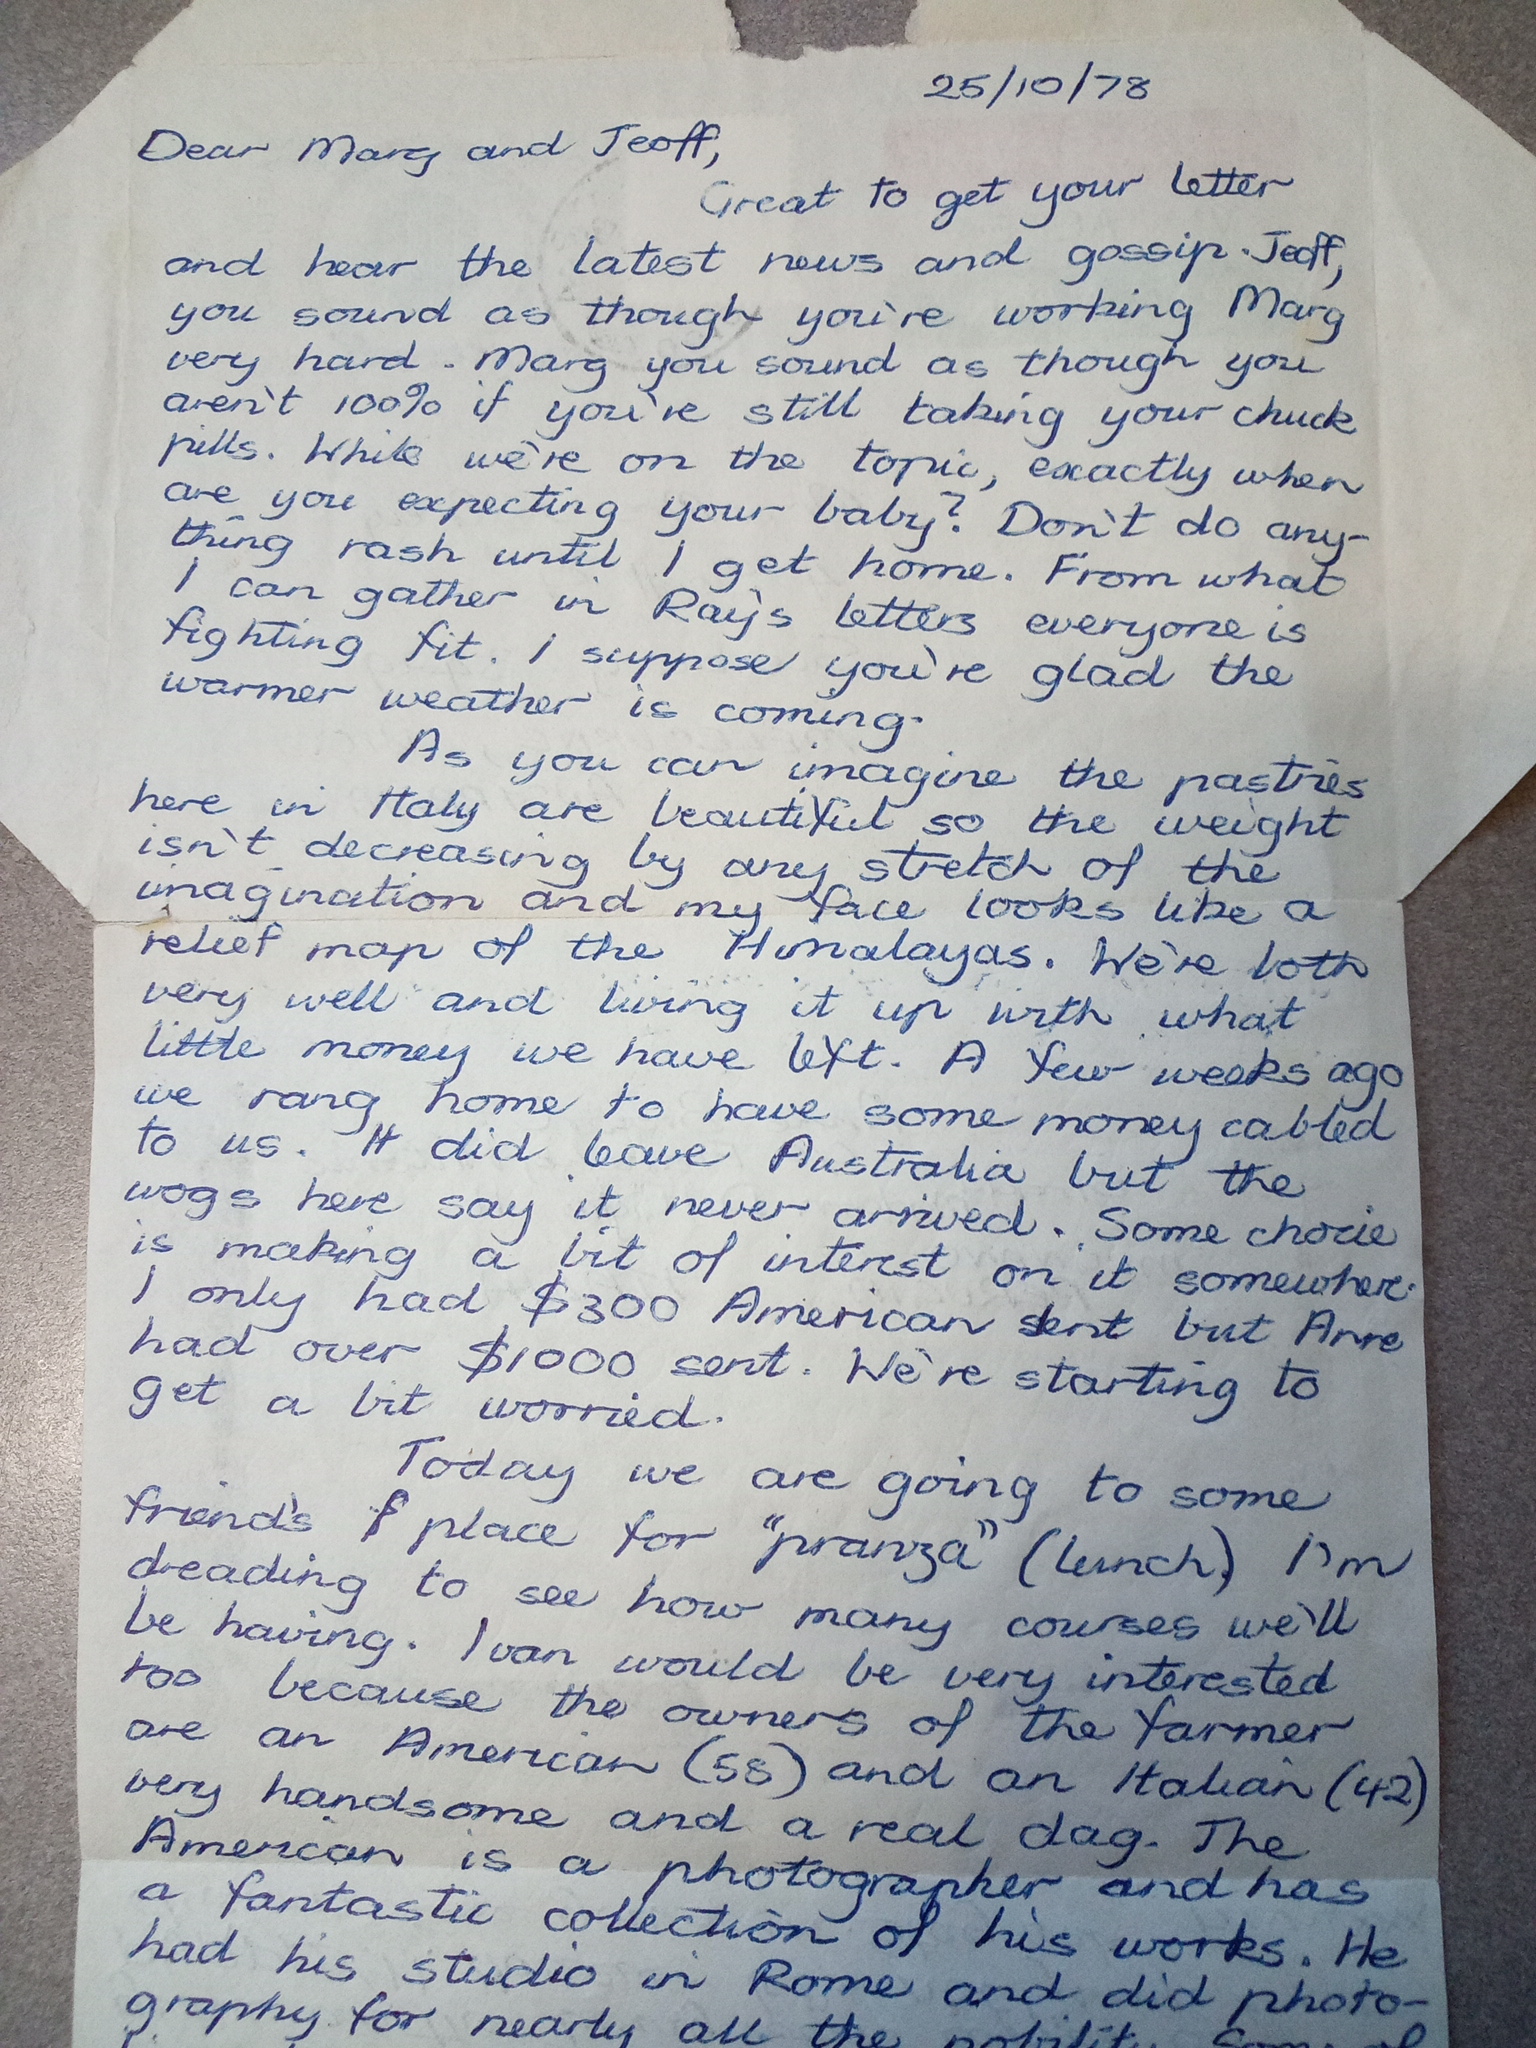 25/10/78
Dear Marg and Jeoff,
Great to get your letter
and hear the latest news and gossip. Jeoff,
you sound as though you're working Marg
very hard. Marg you sound as though you
aren't 100% if you're still taking your chuck
pills. While we're on the topic, exactly when
are you expecting your baby? Don't do any-
thing rash until I get home. From what
I can gather in Ray's letters everyone is
fighting fit. I suppose you're glad the
warmer weather is coming.
As you can imagine the pastries
here in Italy are beautiful so the weight
isn't decreasing by any stretch of the
imagination and my face looks like a
relief map of the Himalayas. We're both
very well and living it up with what
little money we have left. A few weeks ago
we rang home to have some money cabled
to us. It did leave Australia but the
wogs here say it never arrived. Some chocie
is making a bit of interest on it somewhere.
I only had $300 American sent but Anne
had over $1000 sent. We're starting to
get a bit worried.
Today we are going to some
friend's place for "pranza" (lunch) I'm
dreading to see how many courses we'll
be having. Ivan would be very interested
too because the owners of the farmer
are an American (58) and an Italian (42)
very handsome and a real dag. The
American is a photographer and has
a fantastic collection of his works. He
had his studio in Rome and did photo-
graphy for nearly all the nobility. Some of